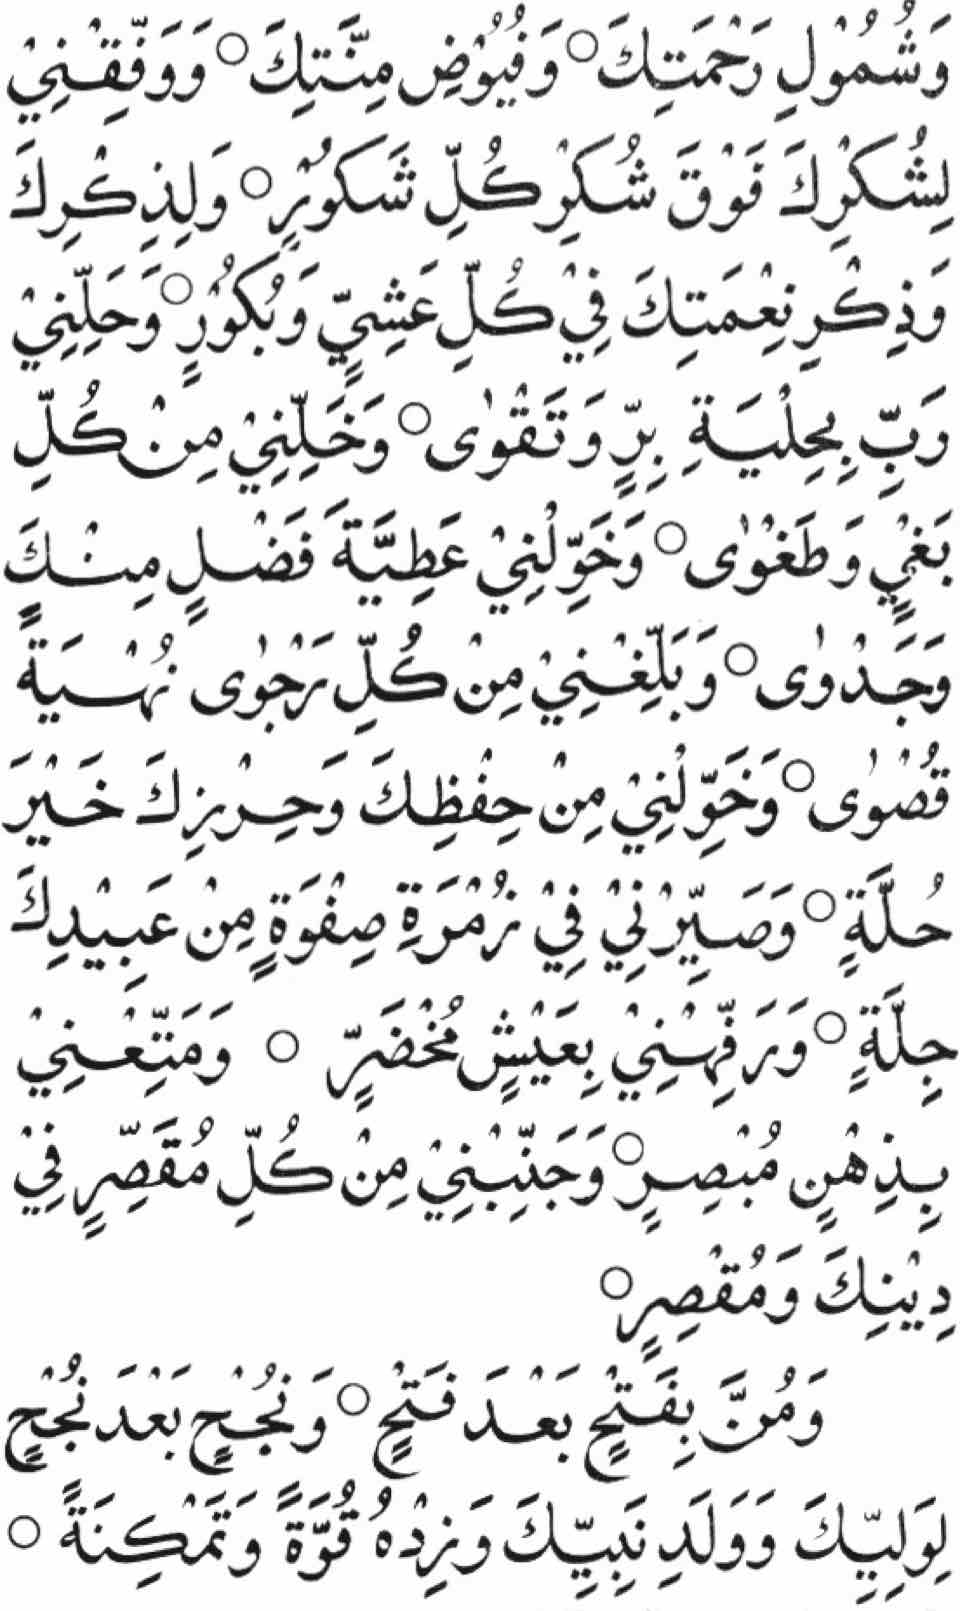 وَشُمُوْلِ رَحْمَتِكَ○ وَفُيُوْضِ مِنَّتِكَ○ وَوَفِّقْنِيْ
لِشُكْرِكَ فَوْقَ شُكْرِ كُلِّ شَكُوْرٍ○ وَلِذِكْرِكَ
وَذِكْرِ نِعْمَتِكَ فِيْ كُلِّ عَشِيٍّ وَبُكُوْرٍ○ وَحَلِّنِيْ
رَبِّ بِحِلْيَةِ بِرٍّ وَتَقْوٰى○ وَخَلِّنِيْ مِنْ كُلِّ
بَغْيٍ وَطَغْوٰى○ وَخَوِّلْنِيْ عَطِيَّةَ فَضْلٍ مِنْكَ
وَجَدْوٰى○ وَبَلِّغْنِيْ مِنْ كُلِّ رَجْوٰى نُهْيَةً
قُصْوٰى○ وَخَوِّلْنِيْ مِنْ حِفْظِكَ وَحِرْزِكَ خَيْرَ
حُلَّةٍ○ وَصَيِّرْنِيْ فِيْ زُمْرَةِ صِفْوَةٍ مِنْ عَبِيْدِكَ
جِلَّةٍ○ وَرَفِّهْنِيْ بِعَيْشٍ مُخْضَرٍّ ○ وَمَتِّعْنِيْ
بِذِهْنٍ مُبْصِرٍ○ وَجَنِّبْنِيْ مِنْ كُلِّ مُقَصِّرٍ فِيْ
دِيْنِكَ وَمُقْصِرٍ○
وَمُنَّ بِفَتْحٍ بَعْدَ فَتْحٍ○ وَنُجْحٍ بَعْدَ نُجْحٍ
لِوَلِيِّكَ وَوَلَدِ نَبِيِّكَ وَزِدْهُ قُوَّةً وَتَمْكِنَةً ○